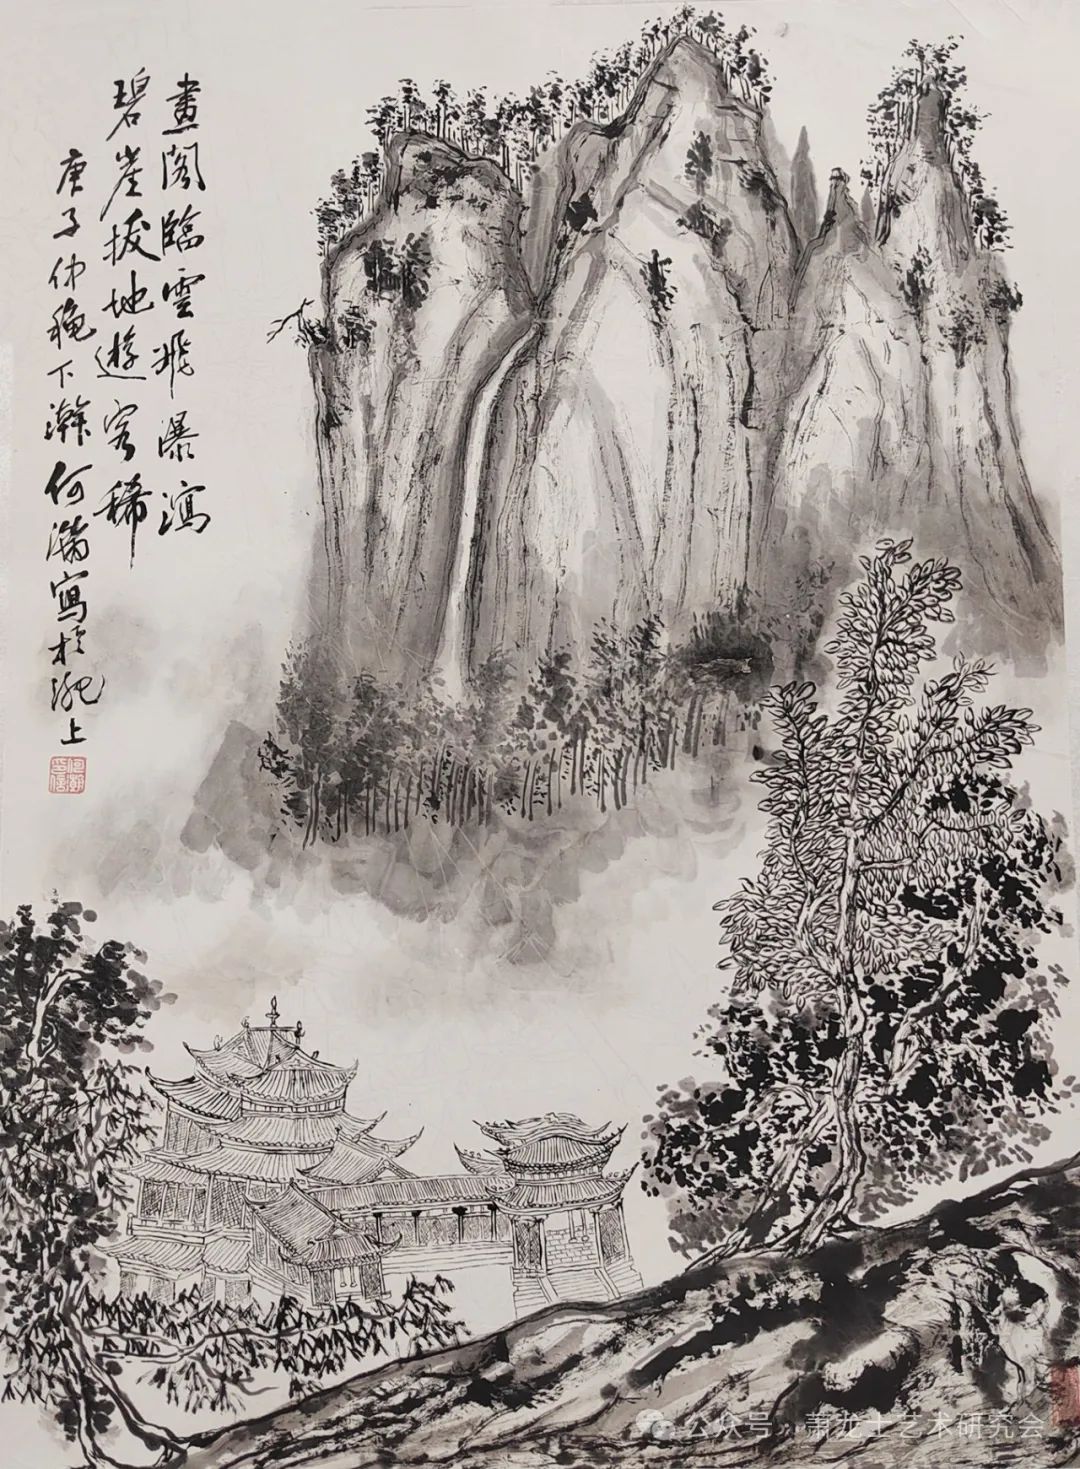 畫阁臨雲飛瀑瀉
碧崖拔地遊客稀
庚子仲穐下澣何满寫於淝上
公众号 · 萧龙士艺术研究会